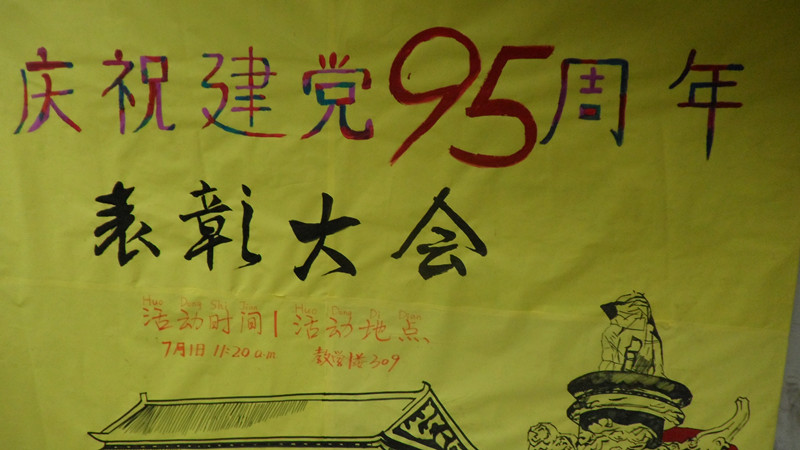 庆祝建党95周年
表彰大会
Huo Dong Shi Jian Huo Dong Di Dian
活动时间 | 活动地点
7月1日 11:20 a.m 教学楼309